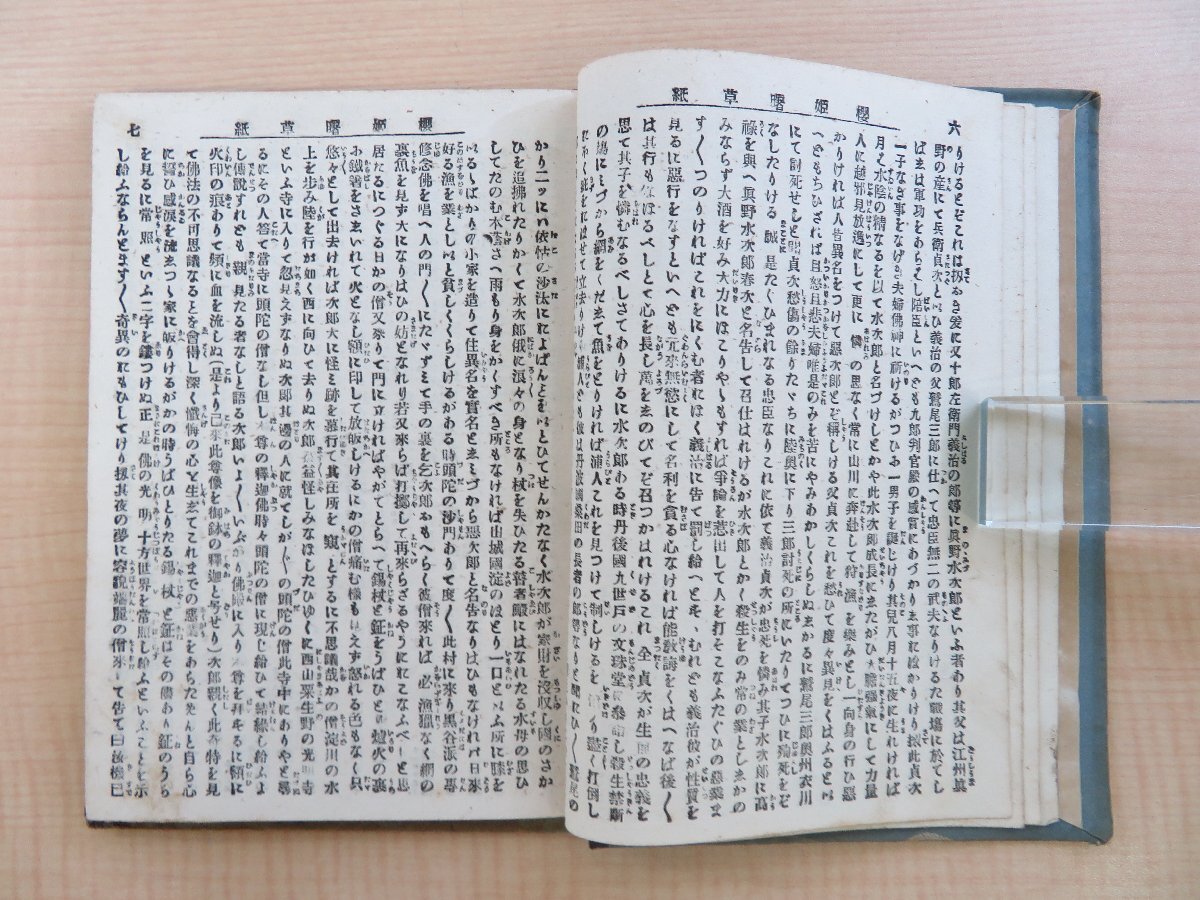 櫻姫曙草紙
六
りけるとぞこれは扨おき爰に又十郎左衛門義治の郎等に眞野水次郎といふ者あり其父は江州眞
野の産にて兵衛貞次といひ義治の父鷲尾三郎に仕へて忠臣無二の武夫なりけるた戰場に於てし
ばしば軍功をあらそし陪臣といへども九郎判官殿の感賞にあづかりし事にはかりけり扨此貞次
一子なき事をなげき夫婦佛神に祈けるがつひに一男子を擬じけり其兒八月十五夜に生れければ
月は水陰の精なるを以て水次郎と名づけしとかや此水次郎成長にしたがひ大膽強氣にして力量
人に越邪見放逸にして更に憐の思なく常に山川に奔赴して狩漁を樂みとし一向身の行ひ惡
かりければ人皆異名をつけて惡次郎とぞ稱しける父貞次これを愁ひて度々異見をくはふるとい
へどももちひざれば且怒且悲夫婦唯是のみを苦にやみあかしくらしぬしかるに鷲尾三郎奥州衣川
にて討死せしと聞貞次愁傷の餘りたゞちに陸奥に下り三郎討死の所にいたりてつひに殉死をぞ
なしたりける誠に是たぐひまれなる忠臣なりこれに依て義治貞次が忠死を憐み其子水次郎に高
祿を與へ眞野水次郎春次と名告して召仕はれけるが水次郎とかく殺生をのみ常の業としまかの
みならず大酒を好み大力にほこりてやゝもすれば爭論を惹出して人を打そこなふたぐひの惡業ま
す〱つのりければこれをにくむ者おほく義治に告て罰し給へと
見るに惡行をなすといへども元來無慾にして名利を貪る心なければ能教誨をくはへなば後〱
は其行もなほるべしとて心を長し萬をしのびてぞ召つかはれけるこれ全貞次が生
思て其子を憐むなるべしさてありけるに水次郎わる時丹後國九世戸の文珠堂に參詣し殺生禁斷
の塲にみづから網をくだして魚をとりければ浦人これを見つけて制しけるを
櫻姫曙草紙
七
かり二ッにハ依怙の沙汰におよばんとをしとひてせんかたなく水次郎が家財を沒収し國のさか
ひを追拂れたりかくて水次郎俄に浪々の身となり杖を失ひたる瞽者鰕にはなれたる水母の思ひ
してたのむ木蔭さへ雨もり身をかくすべき所もなければ山城國淀のほとり一口といふ所に膝を
いるゝばかりの小家を造りて住異名を實名としみづから惡次郎と名告なりはひもなければ日來
好る漁を業としいと貧しくくらしけるがある時頭陀の沙門ありて度〱此村に來り黒谷派の專
修念佛を唱へ人の門〱にたゝずみて手の裏を乞次郎おもへらく彼僧來れば必漁獵なく網の
裏魚を見ず大になりはひの妨となれり若又來らば打擲して再來らざるやうにおこなふべしと思
居たるにつぐる日かの僧又來りて門に立ければやがてとらへて錫杖と鉦をうばひとり爐火の裏
お鐵箸をさしいれて火となし額に印して放皈しけるにかの僧痛む樣もはえず怒れる色もなく只
悠々として出去ければ次郎大に怪しみ跡を慕行て其在所を窺んとするに不思議哉かの僧淀川の水
上を歩み陸を行が如く西に向ひて去りぬ次郎益怪しみなほしたひゆくに西山栗生野の光明寺
といふ寺に入りて忽見えずなりぬ次郎其邊の人に就てしか〱の頭陀の僧此寺中にありやと尋
るにその人答て當寺に頭陀の僧なし但し本尊の釋迦佛時々頭陀の僧に現じ給ひて結縁し給ふよ
し傳説すれども親見たる者なしと語る次郎いよ〱いぶかり佛殿に入り本尊を拜するに額に
火印の痕ありて頻に血を流しぬ（是より已來此尊像を御鉢の釋迦と号せり）次郎親く此奇特を見
て佛法の不可思議なることを會得し深く懺悔の心を生じてこれまでの惡業をあらためんと自ら心
に誓ひ感涙を流しつゝ家に皈りけるがかの時うばひとりたる錫杖と鉦はその儘ありて鉦のうら
を見るに常照といふ二字を鐫つけぬ正に是佛の光明十方世界を常照し給ふといふことを示
し給ふならんとます〱奇異のおもひしてけり扨其夜の夢に容貌端麗の僧來りて告て曰汝機已